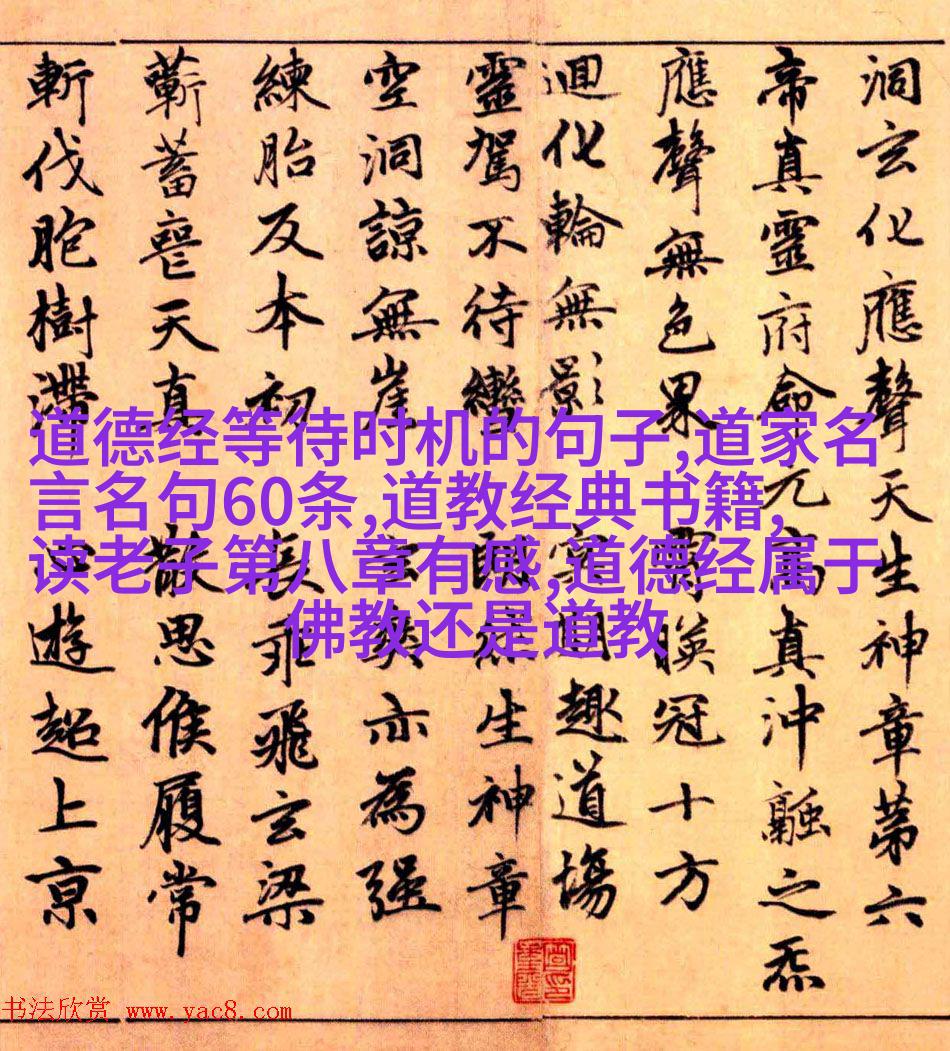 洞玄化應聲天生神章第六
帝真靈府命元高真沖融之炁
應聲無色界映冠十方
迴化輪無影趣道場
靈駕不待轡生神章
空洞諒無崖玄爽亦為強
練胎反本初長乖飛玄梁
蘄蓄喪天真散思候履常
斬伐胞樹滯遊超上京
道德经等待时机的句子,道家名
言名句60条,道教经典书籍,
读老子第八章有感,道德经属于
佛教还是道教
书法欣赏 www.yac8.com